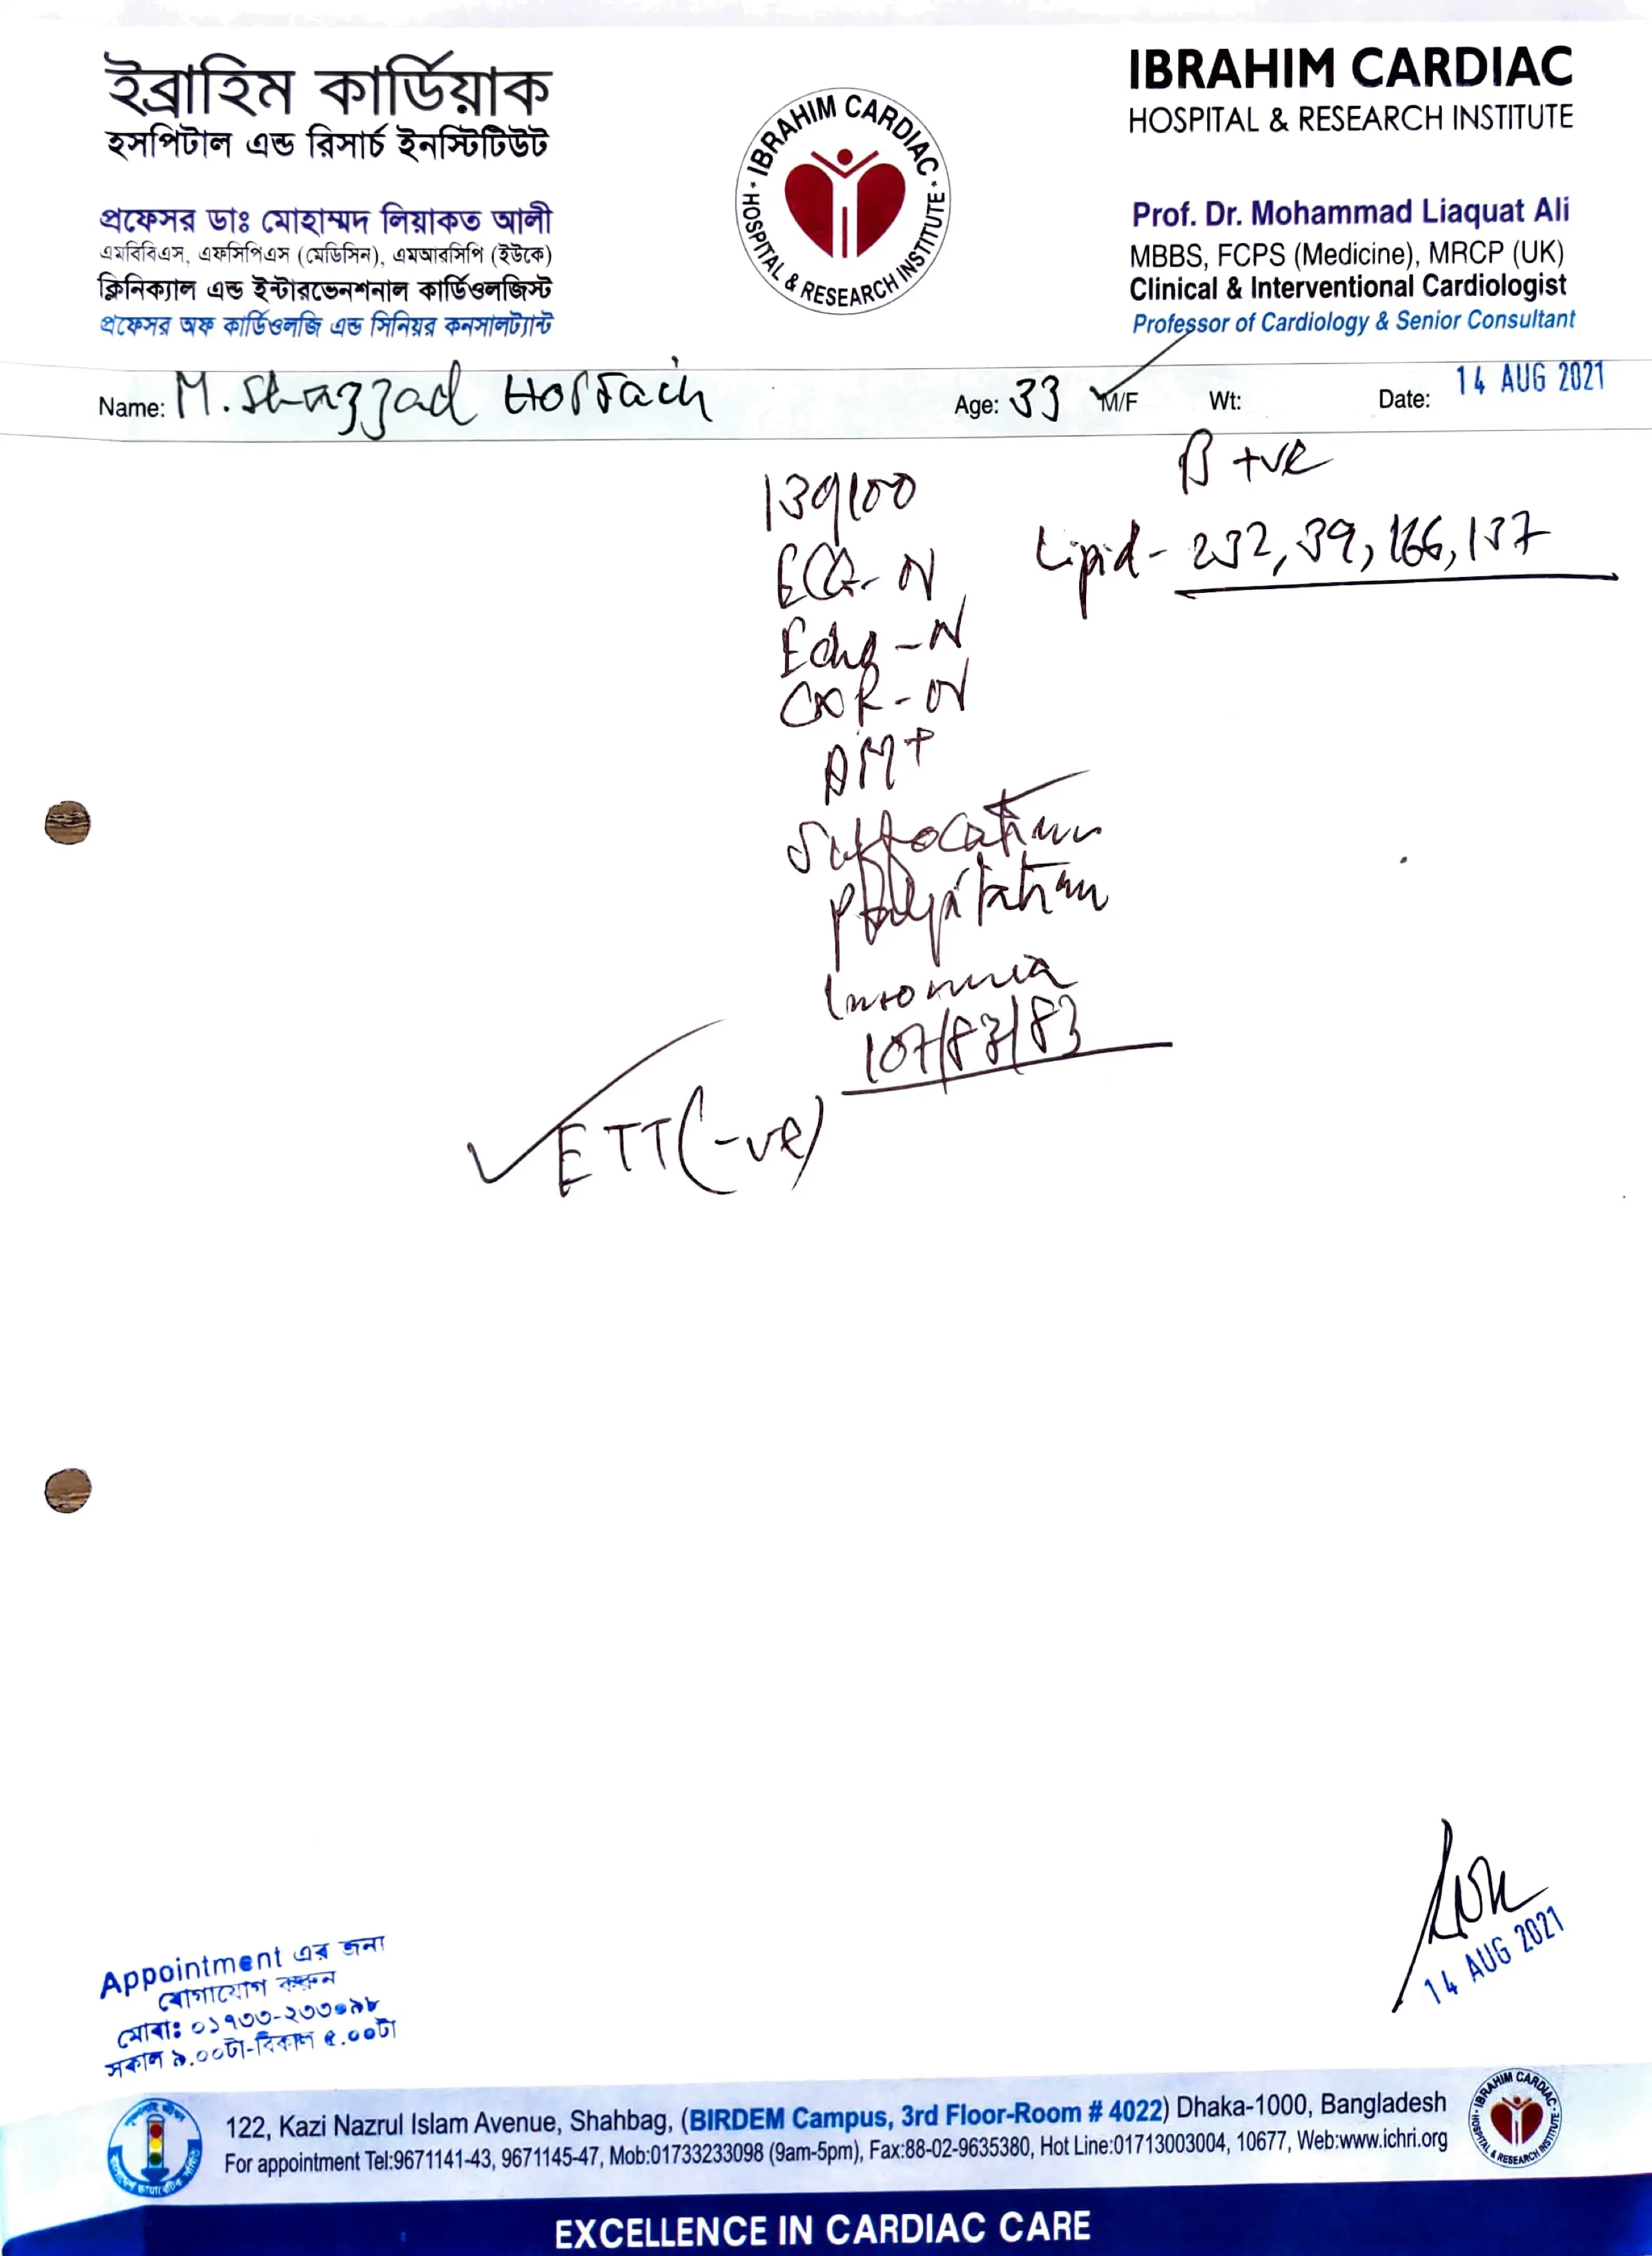 ইব্রাহিম কার্ডিয়াক
হসপিটাল এন্ড রিসার্চ ইনস্টিটিউট
প্রফেসর ডাঃ মোহাম্মদ লিয়াকত আলী
এমবিবিএস, এফসিপিএস (মেডিসিন), এমআরসিপি (ইউকে)
ক্লিনিক্যাল এন্ড ইন্টারভেনশনাল কার্ডিওলজিস্ট
প্রফেসর অফ কার্ডিওলজি এন্ড সিনিয়র কনসালট্যান্ট
IBRAHIM CARDIAC
HOSPITAL & RESEARCH INSTITUTE
IBRAHIM CARDIAC
HOSPITAL & RESEARCH INSTITUTE
Prof. Dr. Mohammad Liaquat Ali
MBBS, FCPS (Medicine), MRCP (UK)
Clinical & Interventional Cardiologist
Professor of Cardiology & Senior Consultant
Name: M. Shazzad Hossain Age: 33 M/F Wt: Date: 14 AUG 2021
B +ve
139/100
Lipid - 232, 39, 166, 137
ECG - N
Echo - N
CXR - N
DM+
Suffocation
Palpitation
Insomnia
107/83/83
ETT (-ve)
14 AUG 2021
Appointment এর জন্য
যোগাযোগ করুন
মোবাঃ ০১৭৩৩-২৩৩০৯৮
সকাল ৯.০০টা-বিকাল ৫.০০টা
122, Kazi Nazrul Islam Avenue, Shahbag, (BIRDEM Campus, 3rd Floor-Room # 4022) Dhaka-1000, Bangladesh
For appointment Tel:9671141-43, 9671145-47, Mob:01733233098 (9am-5pm), Fax:88-02-9635380, Hot Line:01713003004, 10677, Web:www.ichri.org
IBRAHIM CARDIAC
HOSPITAL & RESEARCH INSTITUTE
EXCELLENCE IN CARDIAC CARE